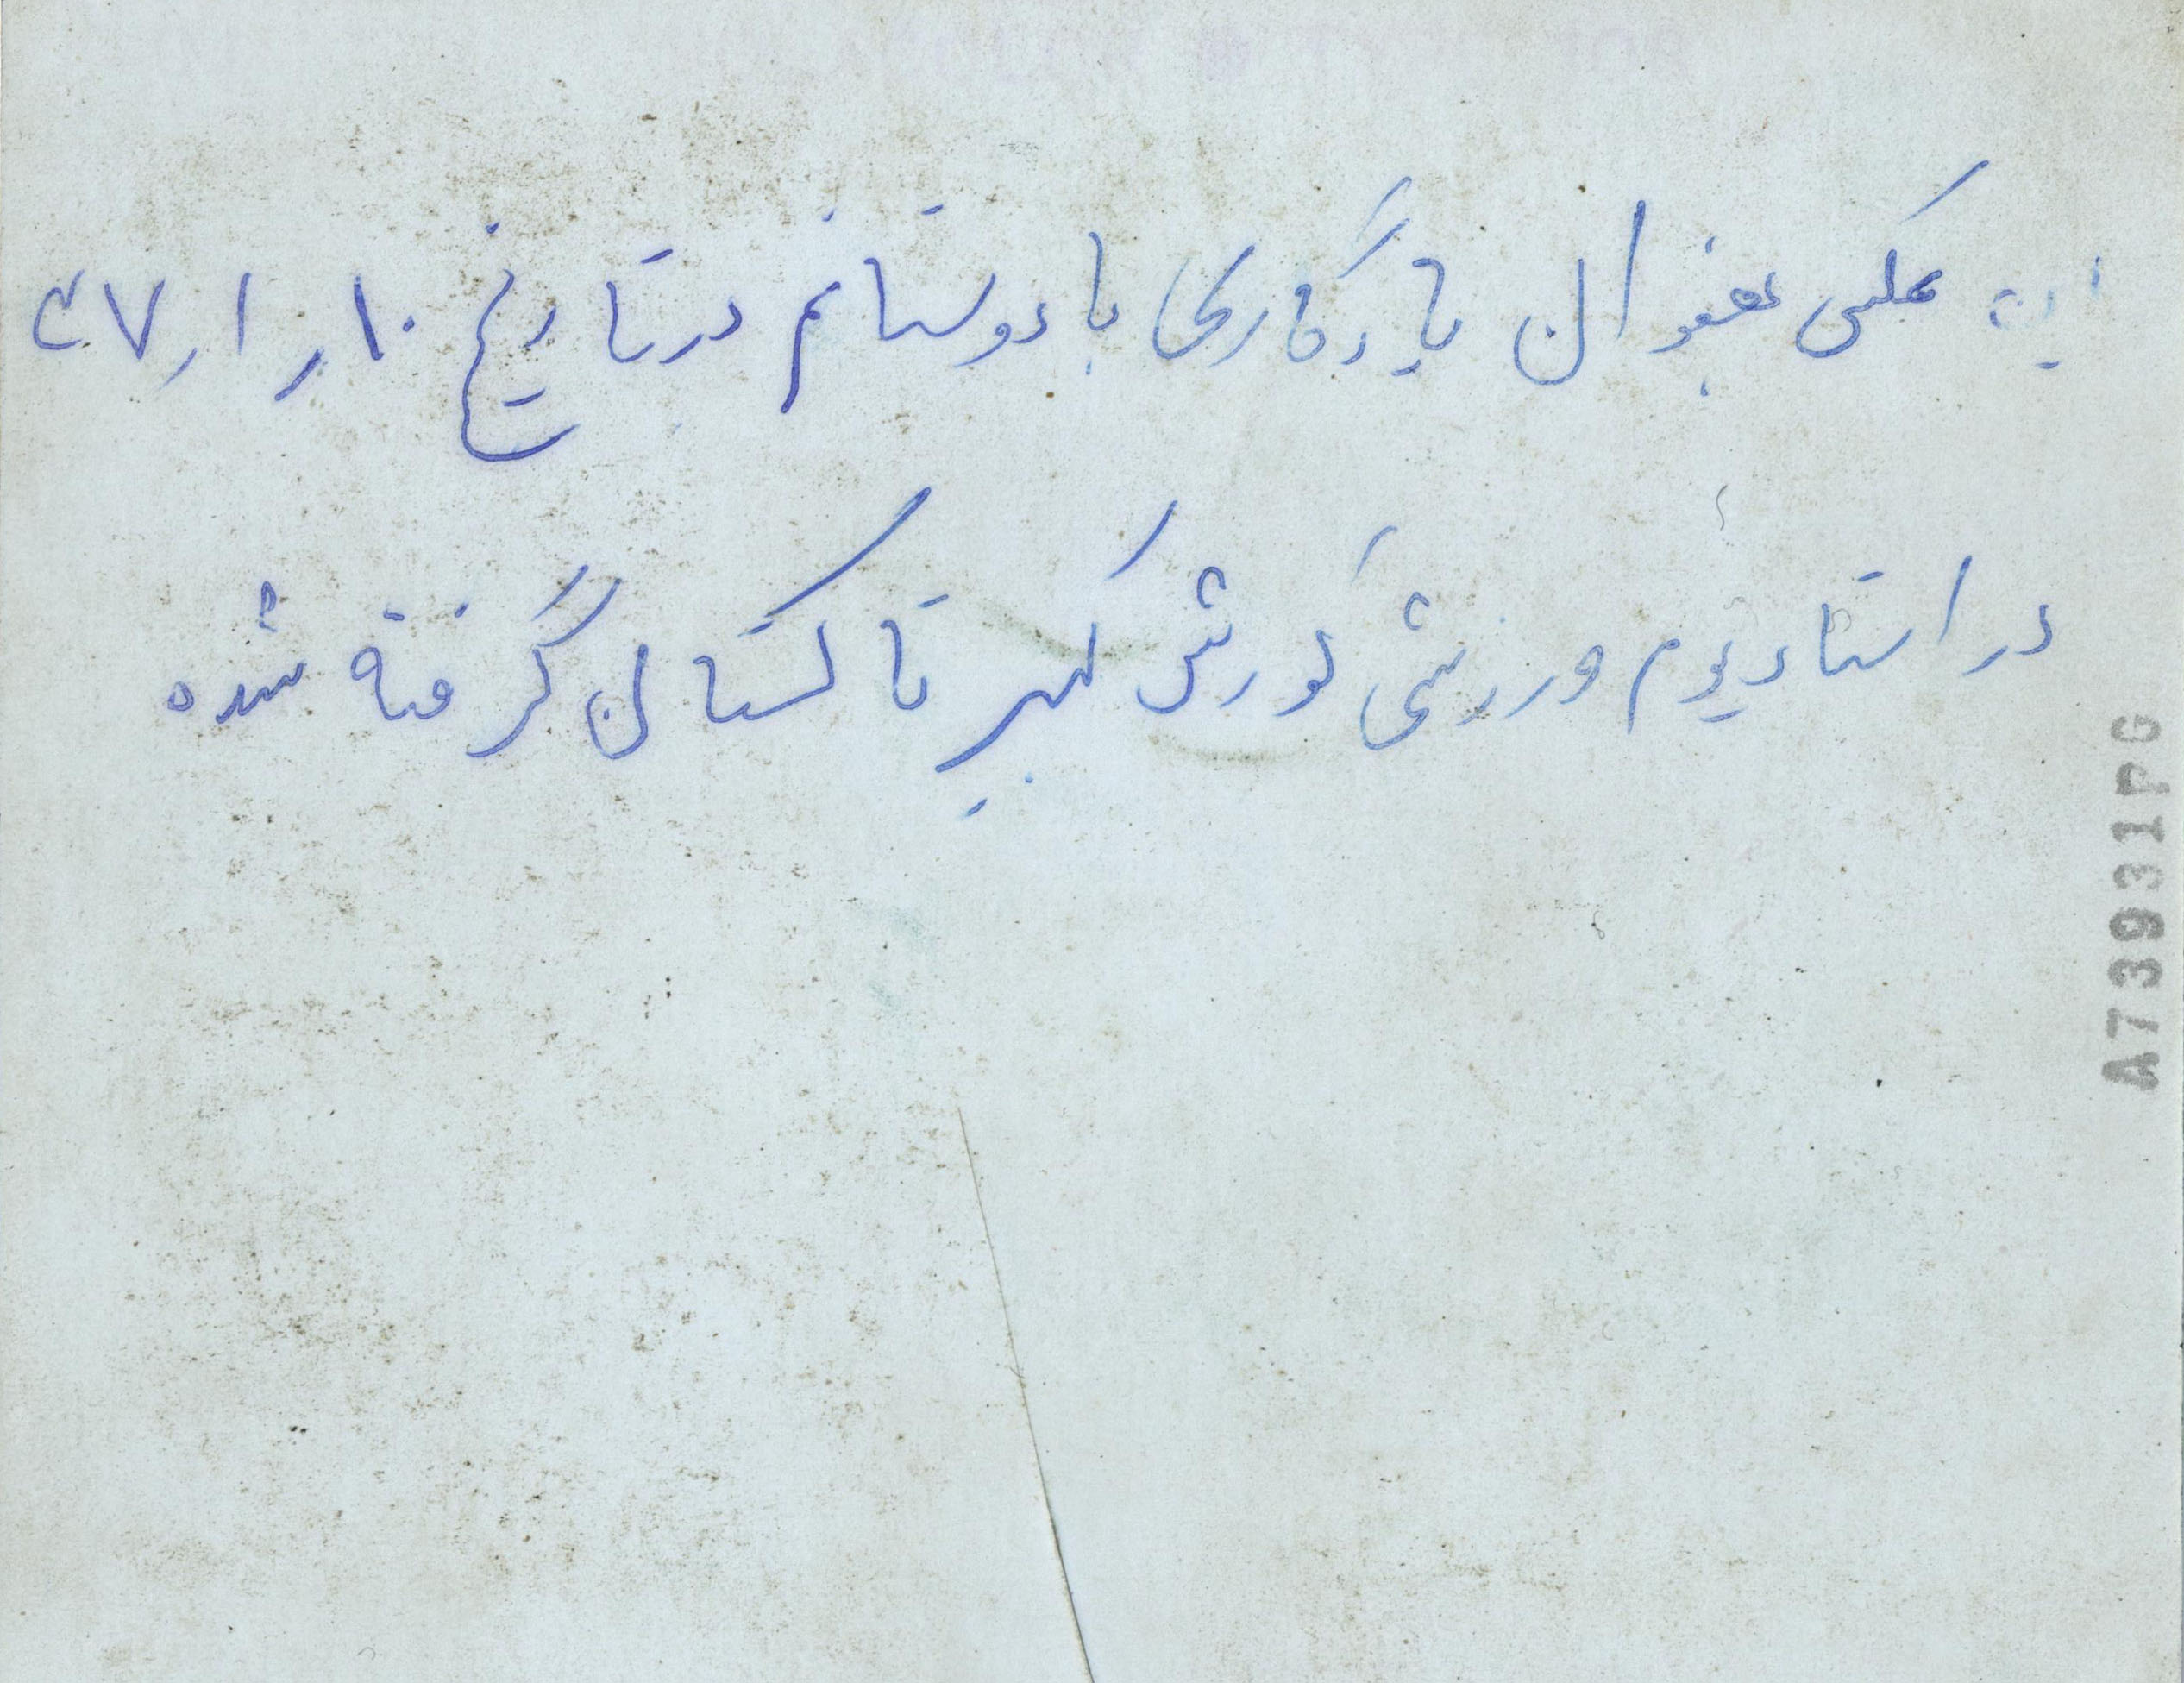 این عکس بعنوان یادگاری با دوستانم در تاریخ ۱۰ر۱ر۴۷
در استادیوم ورزشی کورش کبیر تاکستان گرفته شده
A73931PG